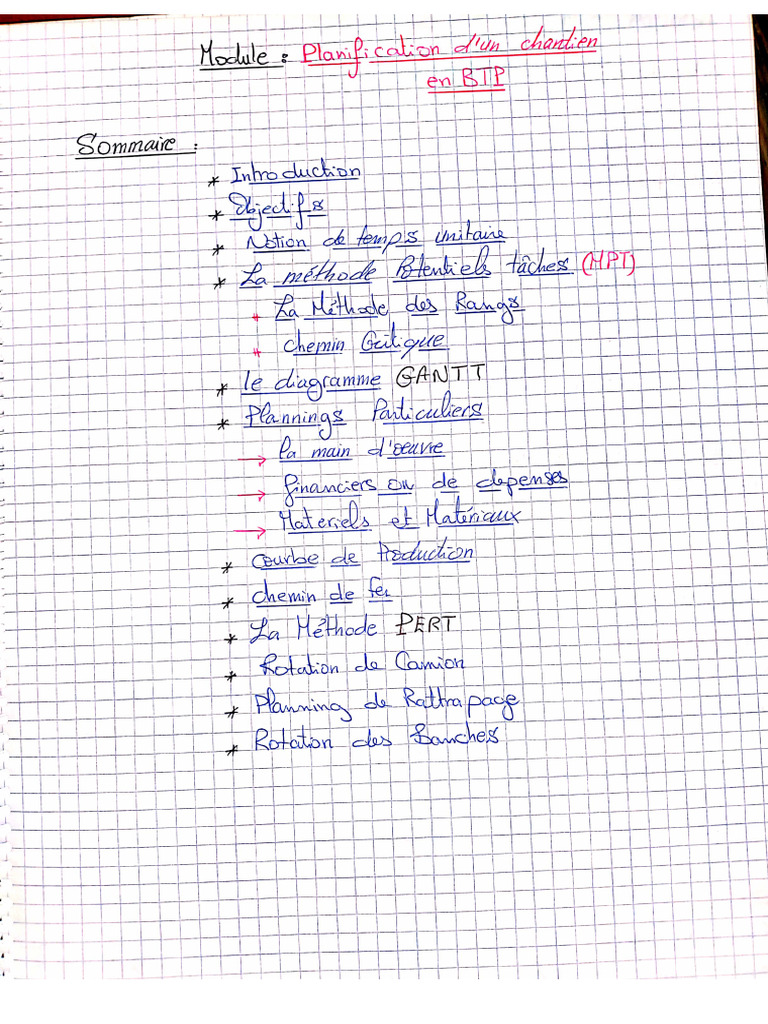 Module : Planification d'un chantier
en BTP
Sommaire :
* Introduction
* Objectifs
* Notion de temps unitaire
* La méthode Potentiels tâches (MPT)
* La Méthode des Rangs
* chemin Critique
* le diagramme GANTT
* Plannings Particuliers
→ la main d'oeuvre
→ financiers ou de depenses
→ Materiels et Matériaux
* Courbe de Production
* chemin de fer
* La Méthode PERT
* Rotation de Camion
* Planning de Rattrapage
* Rotation des Banches